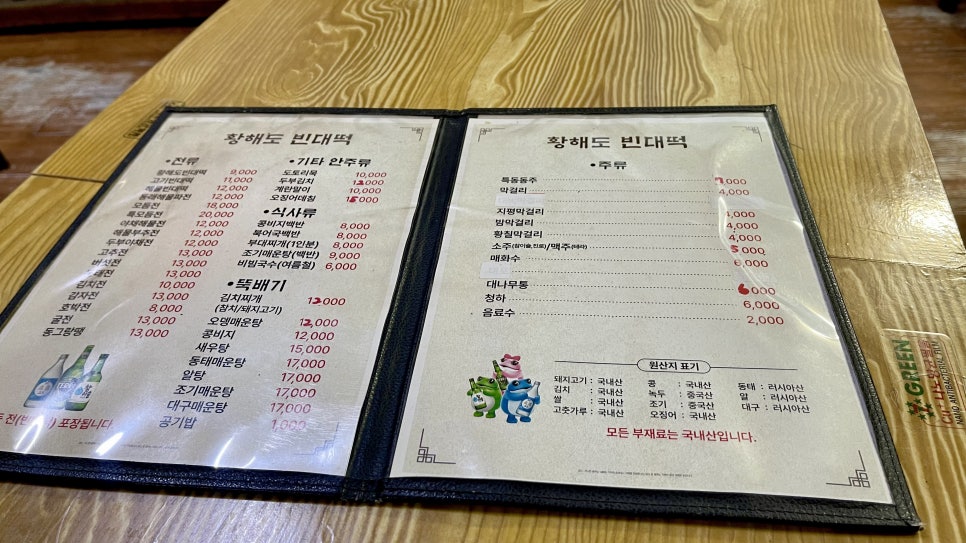 황해도 빈대떡
•전류
황해도빈대떡 9,000
고기빈대떡 11,000
해물빈대떡 12,000
동래해물파전 12,000
모듬전 18,000
특모듬전 20,000
야채해물전 12,000
해물부추전 12,000
두부야채전 12,000
고추전 13,000
버섯전 13,000
13,000
김치전 10,000
감자전 13,000
호박전 8,000
굴전 13,000
동그랑땡 13,000
포장됩니다.
•기타 안주류
도토리묵 10,000
두부김치 12,000
계란말이 10,000
오징어데침 15,000
•식사류
콩비지백반 8,000
북어국백반 8,000
부대찌개(1인분) 8,000
조기매운탕(백반) 9,000
비빔국수(여름철) 6,000
•뚝배기
김치찌개 12,000
(참치/돼지고기)
오뎅매운탕 12,000
콩비지 12,000
새우탕 15,000
동태매운탕 17,000
알탕 17,000
조기매운탕 17,000
대구매운탕 17,000
공기밥 1,000
황해도 빈대떡
•주류
특동동주 7,000
막걸리 4,000
지평막걸리 4,000
밤막걸리 4,000
황칠막걸리 4,000
소주(참이슬,진로)/맥주(테라) 5,000
매화수 6,000
대나무통 6,000
청하 6,000
음료수 2,000
원산지 표기
돼지고기 : 국내산
김치 : 국내산
쌀 : 국내산
고춧가루 : 국내산
콩 : 국내산
녹두 : 중국산
조기 : 중국산
오징어 : 국내산
동태 : 러시아산
알 : 러시아산
대구 : 러시아산
모든 부재료는 국내산입니다.
GREEN